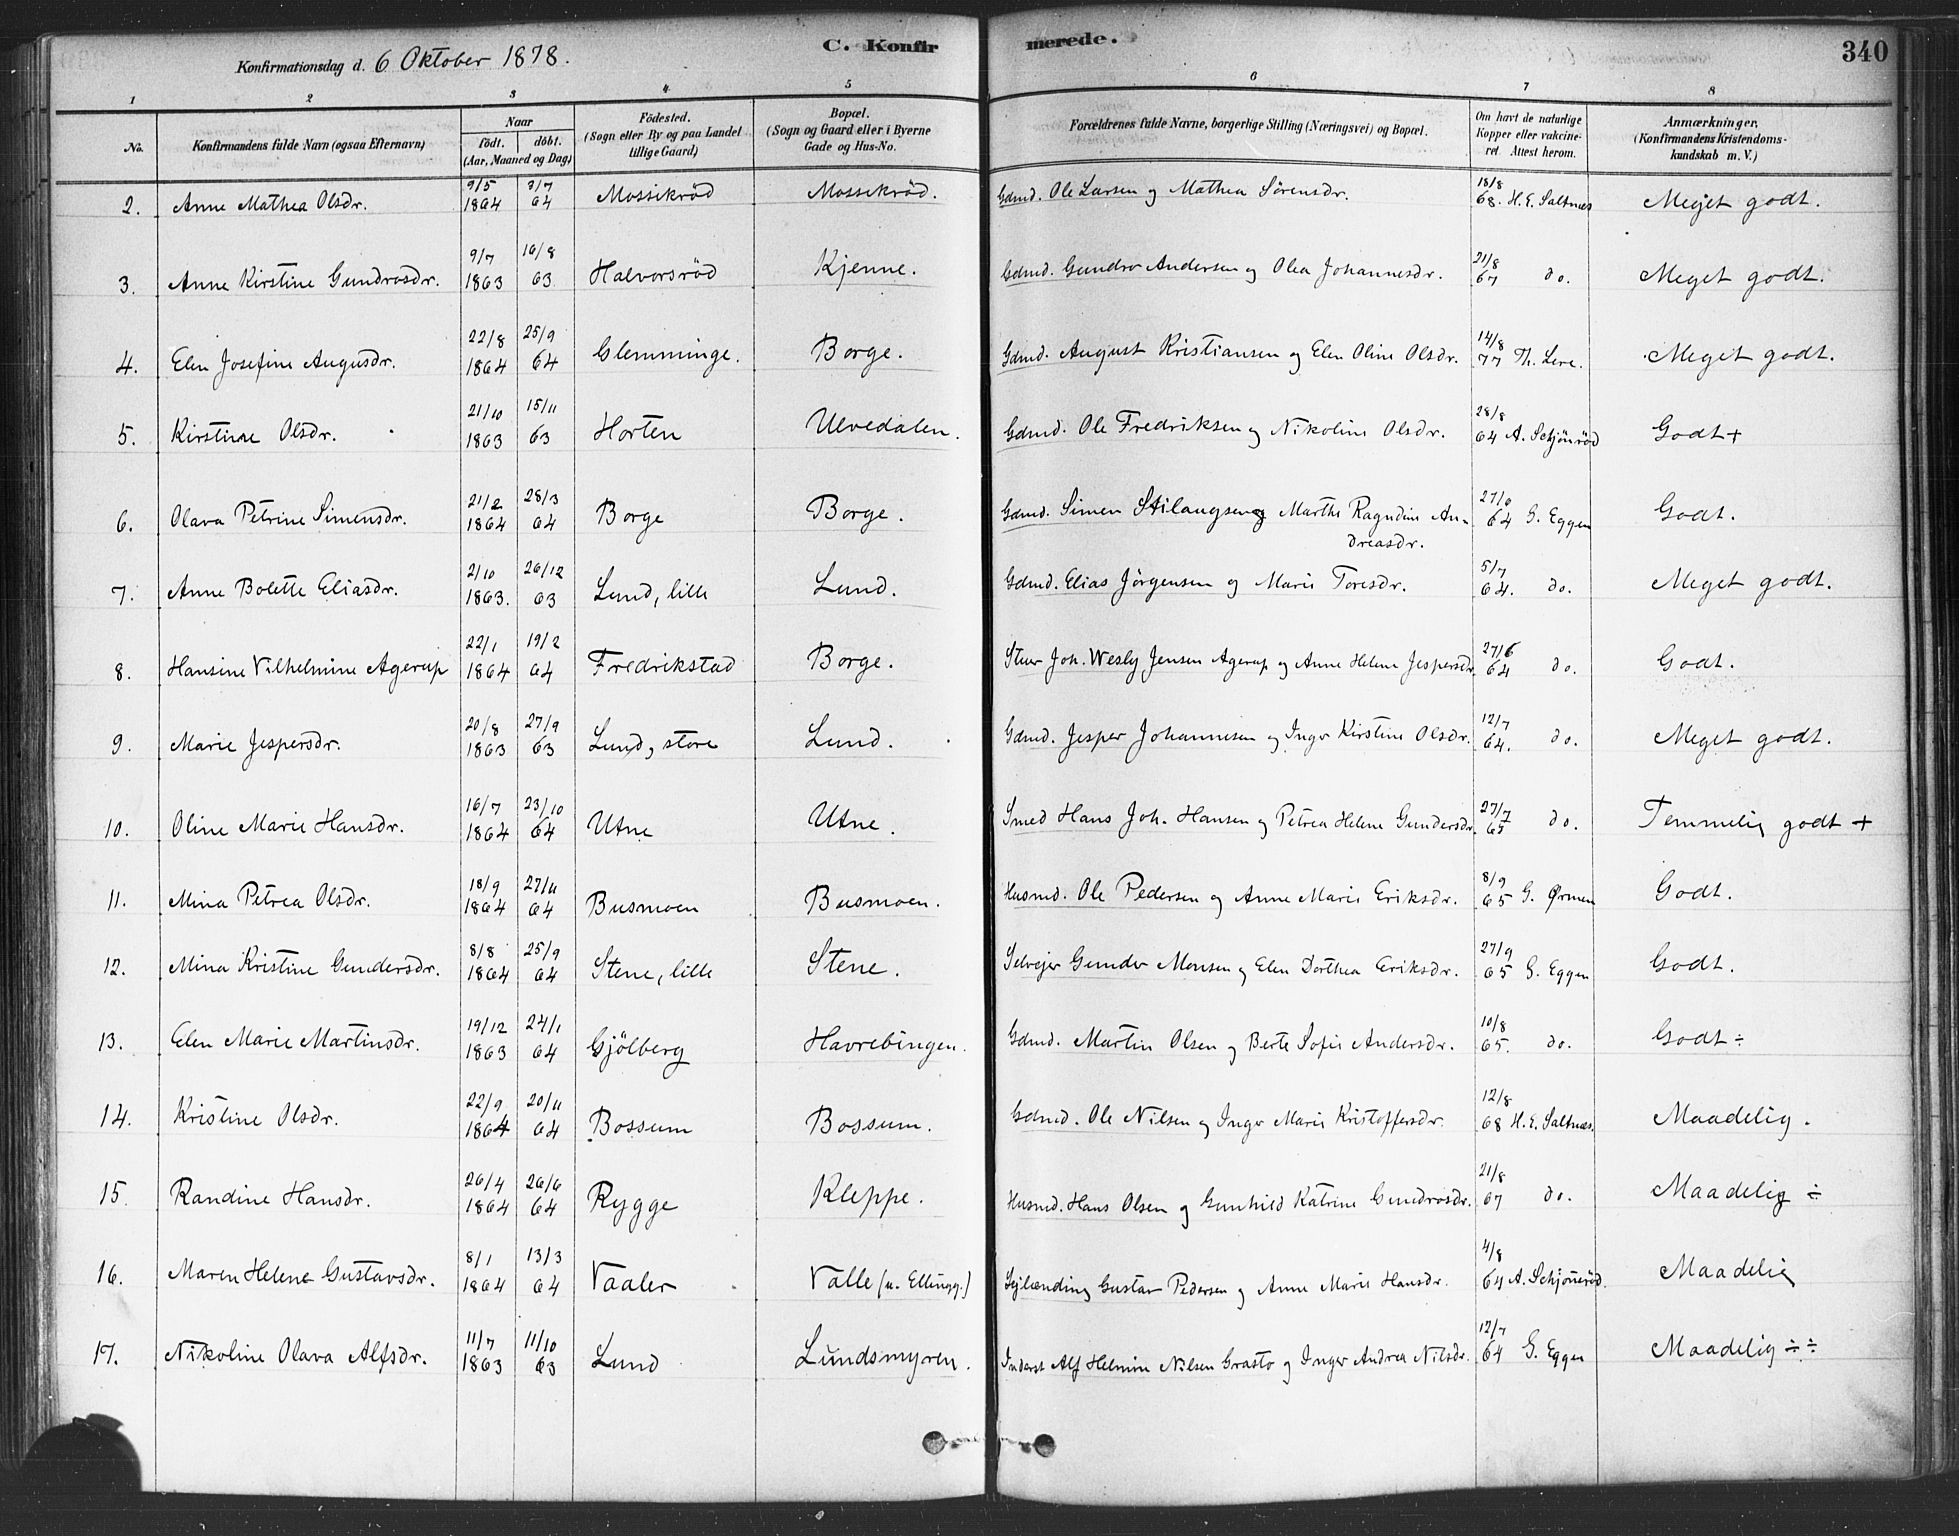 C. Konfirmerede.
340
Konfirmationsdag d. 6 Oktober 1878.
1 2 3 4 5 6 7 8
No. Konfirmandens fulde Navn (ogsaa Efternavn) Naar födt. döbt. (Aar, Maaned og Dag) Födested. (Sogn eller By og paa Landet tillige Gaard) Bopæl. (Sogn og Gaard eller i Byerne Gade og Hus-No. Forældrenes fulde Navne, borgerlige Stilling (Næringsvei) og Bopæl. Om havt de naturlige Kopper eller vakcineret. Attest herom. Anmærkninger, (Konfirmandens Kristendomskundskab m. V.)
2. Anne Mathea Olsdr. 9/5 1864 3/7 64 Mossikröd Mossikröd. Gdmd. Ole Larsen og Mathea Sörensdr. 18/8 68. H. E. Saltnæs Meget godt.
3. Anne Kirstine Gundrosdr. 9/7 1863 16/8 63 Halvorsröd Kjenne. Gdmd. Gundro Andersen og Olea Johannesdr. 21/8 67 do. Meget godt.
4. Elen Josefine Augusdr. 22/8 1864 25/9 64 Glemminge. Borge. Gdmd. August Kristiansen og Elen Oline Olsdr. 14/8 77 Th. Lere. Meget godt.
5. Kirstine Olsdr. 21/10 1863 15/11 63 Horten Ulvedalen. Gdmd. Ole Fredriksen og Nikoline Olsdr. 28/8 64 A. Schjönröd Godt +
6. Olava Petrine Simensdr. 21/2 1864 28/3 64 Borge Borge. Gdmd. Simen Stilaugsen og Marthe Ragndine Andreasdr. 27/6 64 G. Eggen Godt.
7. Anne Bolette Eliasdr. 2/10 1863. 26/12 63 Lund, lille Lund. Gdmd. Elias Jörgensen og Marie Toresdr. 5/7 64. do. Meget godt.
8. Hansine Vilhelmine Agerup 22/1 1864 19/2 64 Fredrikstad Borge. Stuer Joh. Wesly Jensen Agerup og Anne Helene Jespersdr. 27/6 64 do. Godt.
9. Marie Jespersdr. 20/8 1863 27/9 63 Lund, store Lund. Gdmd. Jesper Johannesen og Inger Kirstine Olsdr. 12/7 64. do. Meget godt.
10. Oline Marie Hansdr. 16/7 1864 23/10 64 Utne Utne. Smed Hans Joh. Hansen og Petrea Helene Gundersdr. 27/7 65 do. Temmelig godt +
11. Mina Petrea Olsdr. 18/9 1864 27/11 64 Busmoen Busmoen. Husmd. Ole Pedersen og Anne Marie Eriksdr. 8/9 65 G. Ørmen Godt.
12. Mina Kristine Gundersdr. 8/8 1864 25/9 64 Stene, lille Stene. Selvejer Gunder Monsen og Elen Dorthea Eriksdr. 27/9 65 G. Eggen Godt.
13. Elen Marie Martinsdr. 19/12 1863 24/1 64 Gjölberg Havrebingen. Gdmd. Martin Olsen og Berte Sofie Andersdr. 10/8 65. do. Godt ÷
14. Kristine Olsdr. 22/9 1864 20/11 64 Bossum Bossum. Gdmd. Ole Nilsen og Inger Marie Kristoffersdr. 12/8 68 H. E. Saltnæs. Maadelig.
15. Randine Hansdr. 26/4 1864 26/6 64 Rygge Kleppe. Husmd. Hans Olsen og Gunhild Katrine Gundrosdr. 21/8 67 do. Maadelig ÷
16. Maren Helene Gustavsdr. 8/1 1864 13/3 64 Vaaler Valle (u. Ellingg.) Sejlænding Gustav Pedersen og Anne Marie Hansdr. 4/8 64 A. Schjönröd. Maadelig
17. Nikoline Olava Alfsdr. 11/7 1863 11/10 63 Lund Lundsmyren. Inderst Alf Helmin Nilsen Grasto og Inger Andrea Nilsdr. 12/7 64 G. Eggen Maadelig ÷ ÷